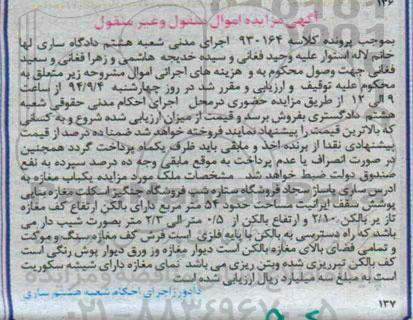 ۱۳۶
آگهی مزایده اموال منقول و غیر منقول
بموجب پرونده کلاسه ۱۶۴-۹۳ اجرای مدنی شعبه هشتم دادگاه ساری لها
خانم لاله استوار علیه وحید فغانی و سیده خدیجه هاشمی و زهرا فغانی و سعید
فغانی جهت وصول محکوم به و هزینه های اجرائی اموال مشروحه زیر متعلق به
محکوم علیه توقیف و ارزیابی و مقرر شد در روز چهارشنبه ۹۴/۹/۴ از ساعت
۹ الی ۱۲ از طریق مزایده حضوری درمحل اجرای احکام مدنی حقوقی شعبه
هشتم دادگستری بفروش برسد و قیمت از میزان ارزیابی شده شروع و به کسانی
که بالاترین قیمت را پیشنهاد نمایند فروخته خواهد شد ضمنا ده درصد از قیمت
پیشنهادی نقدا از برنده اخذ و مابقی باید ظرف یکماه پرداخت گردد همچنین
در صورت انصراف یا عدم پرداخت به موقع مابقی وجه ده درصد سپرده به نفع
صندوق دولت ضبط خواهد شد مشخصات ملک مورد مزایده یکباب مغازه به
ادرس ساری پاساژ سجاد فروشگاه ستاره شب فروشگاه چنگیز اسکلت مغازه بنایی
پوشش سقف ایرانیت مساحت حدود ۵۴ متر مربع دارای بالکن ارتفاع کف مغازه
تاز یر بالکن ۲/۱۰ و ارتفاع بالکن از ۰/۵ متر الی ۲/۳ متر بصورت شیب دار می
باشد که راه دسترسی به بالکن با پایه فلزی است فرش کف مغازه سنگ و موکت
و تمامی فضای بالای مغازه بالکن است دیوار مغازه وز ورق دیوار پوش رنگی است
کف بالکن تیرریزی شده وبتن ریزی می باشد نمای مغازه دارای شیشه سکوریت
است به مبلغ سه میلیارد ریال ارزیابی شده است
دادورز اجرای احکام شعبه هشتم ساری
۱۳۷